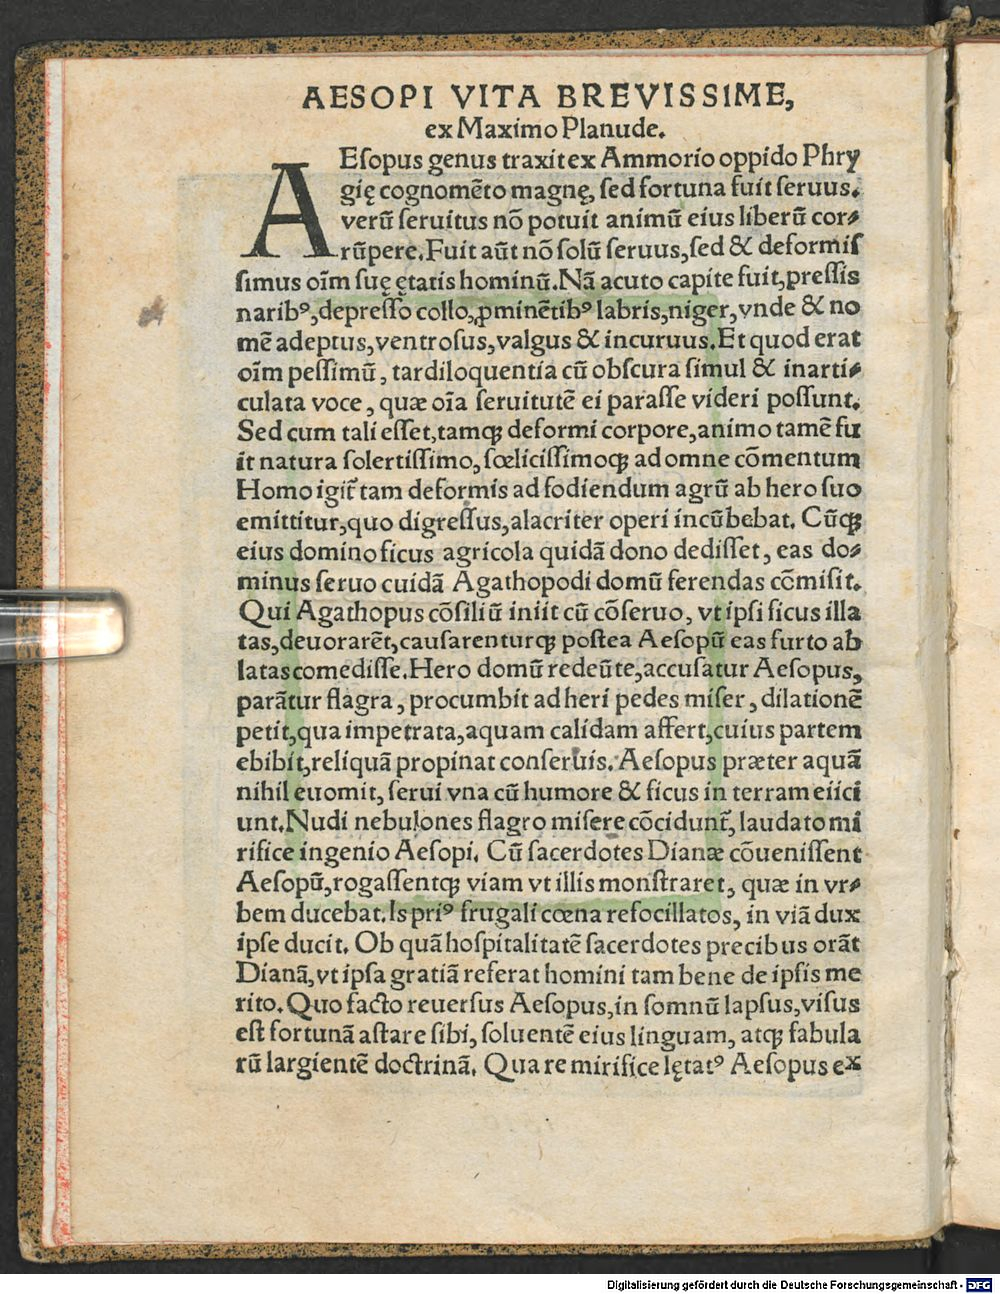 AESOPI VITA BREVISSIME,
ex Maximo Planude.
AEſopus genus traxit ex Ammorio oppido Phry
gię cognomēto magnę, ſed fortuna fuit ſeruus.
verū ſeruitus nō potuit animū eius liberū cor⸗
rūpere. Fuit aūt nō ſolū ſeruus, ſed & deformiſ
ſimus oīm ſuę ętatis hominū. Nā acuto capite fuit, preſſis
naribꝰ, depreſſo collo, ꝓminētibꝰ labris, niger, vnde & no
mē adeptus, ventroſus, valgus & incuruus. Et quod erat
oīm peſſimū, tardiloquentia cū obſcura ſimul & inarti⸗
culata voce, quæ oīa ſeruitutē ei paraſſe videri poſſunt.
Sed cum tali eſſet, tamqꝫ deformi corpore, animo tamē fu
it natura ſolertiſſimo, fœliciſſimoqꝫ ad omne cōmentum
Homo igit᷑ tam deformis ad fodiendum agrū ab hero ſuo
emittitur, quo digreſſus, alacriter operi incūbebat. Cūqꝫ
eius domino ficus agricola quidā dono dediſſet, eas do⸗
minus ſeruo cuidā Agathopodi domū ferendas cōmiſit.
Qui Agathopus cōſiliū iniit cū cōſeruo, vt ipſi ficus illa
tas, deuorarēt, cauſarenturqꝫ poſtea Aeſopū eas furto ab
latas comediſſe. Hero domū redeūte, accuſatur Aeſopus,
parātur flagra, procumbit ad heri pedes miſer, dilationē
petit, qua impetrata, aquam calidam affert, cuius partem
ebibit, reliquā propinat conſeruis. Aeſopus præter aquā
nihil euomit, ſerui vna cū humore & ficus in terram eiici
unt. Nudi nebulones flagro miſere cōcidunt᷑, laudato mi
rifice ingenio Aeſopi. Cū ſacerdotes Dianæ cōueniſſent
Aeſopū, rogaſſentqꝫ viam vt illis monſtraret, quæ in vr⸗
bem ducebat. Is priꝰ frugali cœna refocillatos, in viā dux
ipſe ducit. Ob quā hoſpitalitatē ſacerdotes precibus orāt
Dianā, vt ipſa gratiā referat homini tam bene de ipſis me
rito. Quo facto reuerſus Aeſopus, in ſomnū lapſus, viſus
eſt fortunā aſtare ſibi, ſoluentē eius linguam, atqꝫ fabula
rū largientē doctrinā. Qua re mirifice lętatꝰ Aeſopus ex
Digitalisierung gefördert durch die Deutsche Forschungsgemeinschaft - DFG